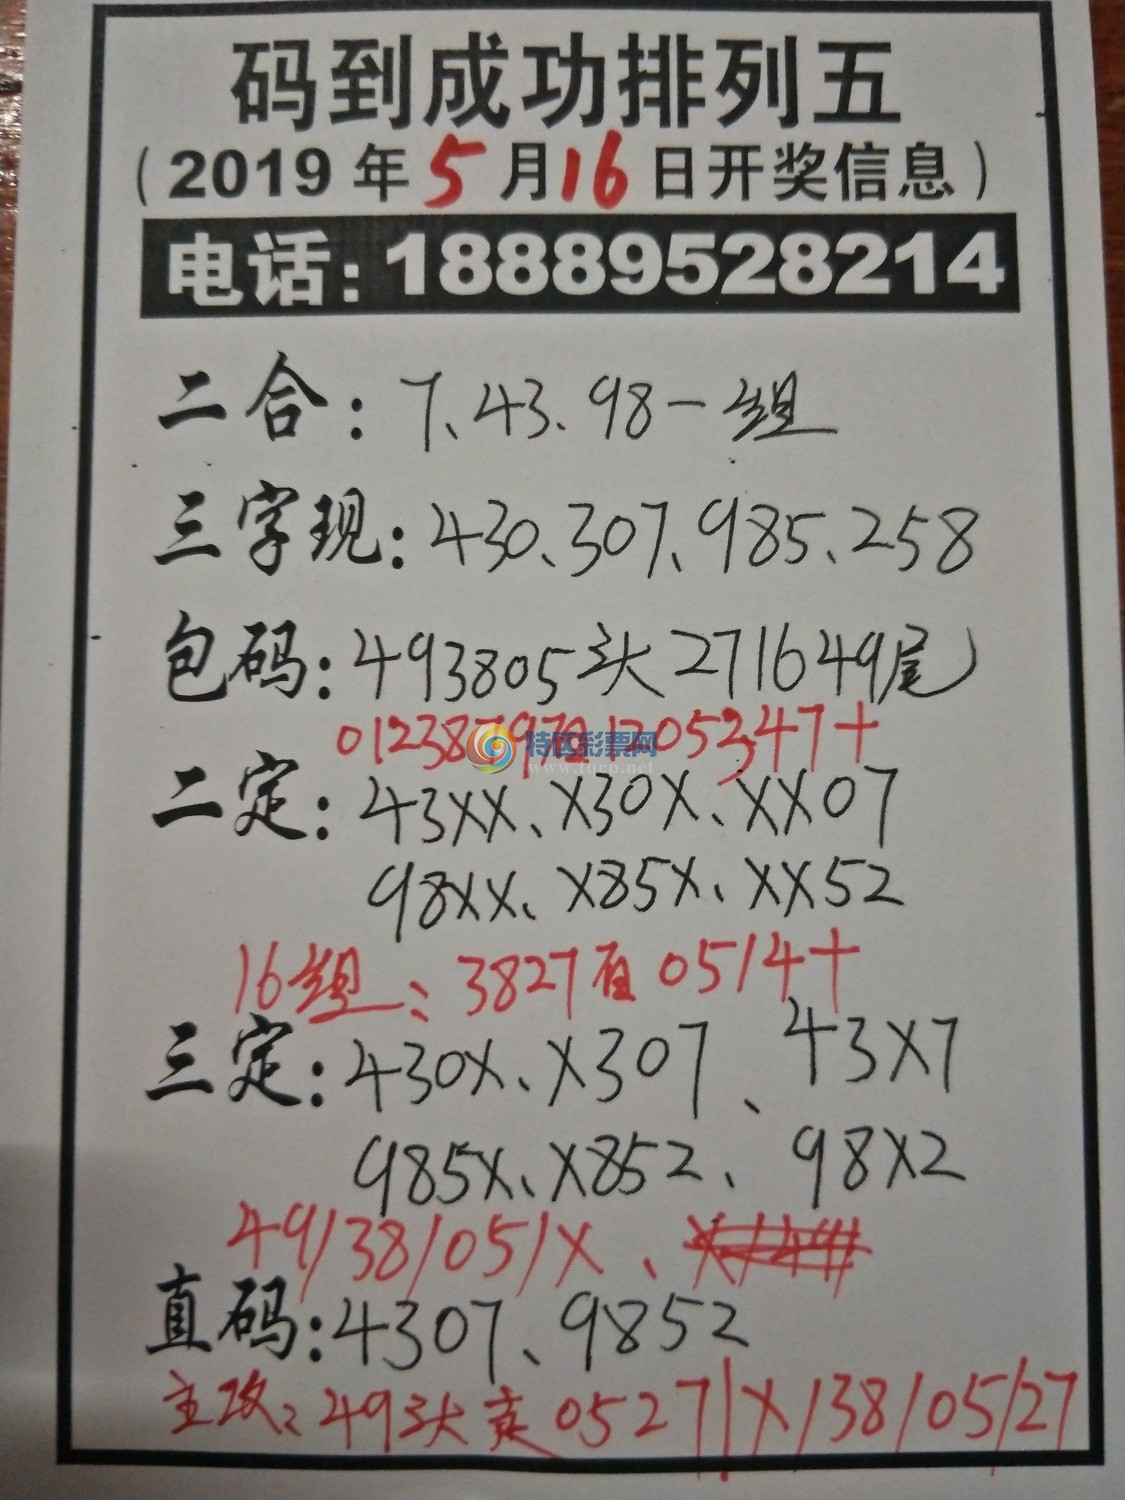 码到成功排列五
(2019年5月16日开奖信息)
电话:18889528214
二合:7、43、98一组
三字现:430、307、985、258
包码:493805头271649尾
特区彩票网
www.tucp.net
二定:43XX、X30X、XX07
98XX、X85X、XX52
16组:3827百0514十
三定:430X、X307、43X7
985X、X852、98X2
49/38/05/X、
直码:4307、9852
主攻:49头卖0527/X/38/05/27